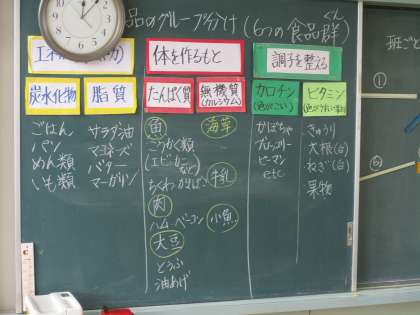 品のグループ分け(6つの食品群)
ぐん
体を作るもと
調子を整える
炭水化物
脂質
たんぱく質
無機質
(カルシウム)
カロチン
(色がこい)
ビタミン
ごはん
パン
めん類
いも類
サラダ油
マヨネーズ
バター
マーガリン
魚
こうかく類
(エビ・カニなど)
ちくわ かまぼこ
肉
ハム・ベーコン
大豆
とうふ
油あげ
海草
牛乳
小魚
かぼちゃ
ブロッコリー
ピーマン
etc
きゅうり
大根(白)
ねぎ(白)
果物
班ごと
①